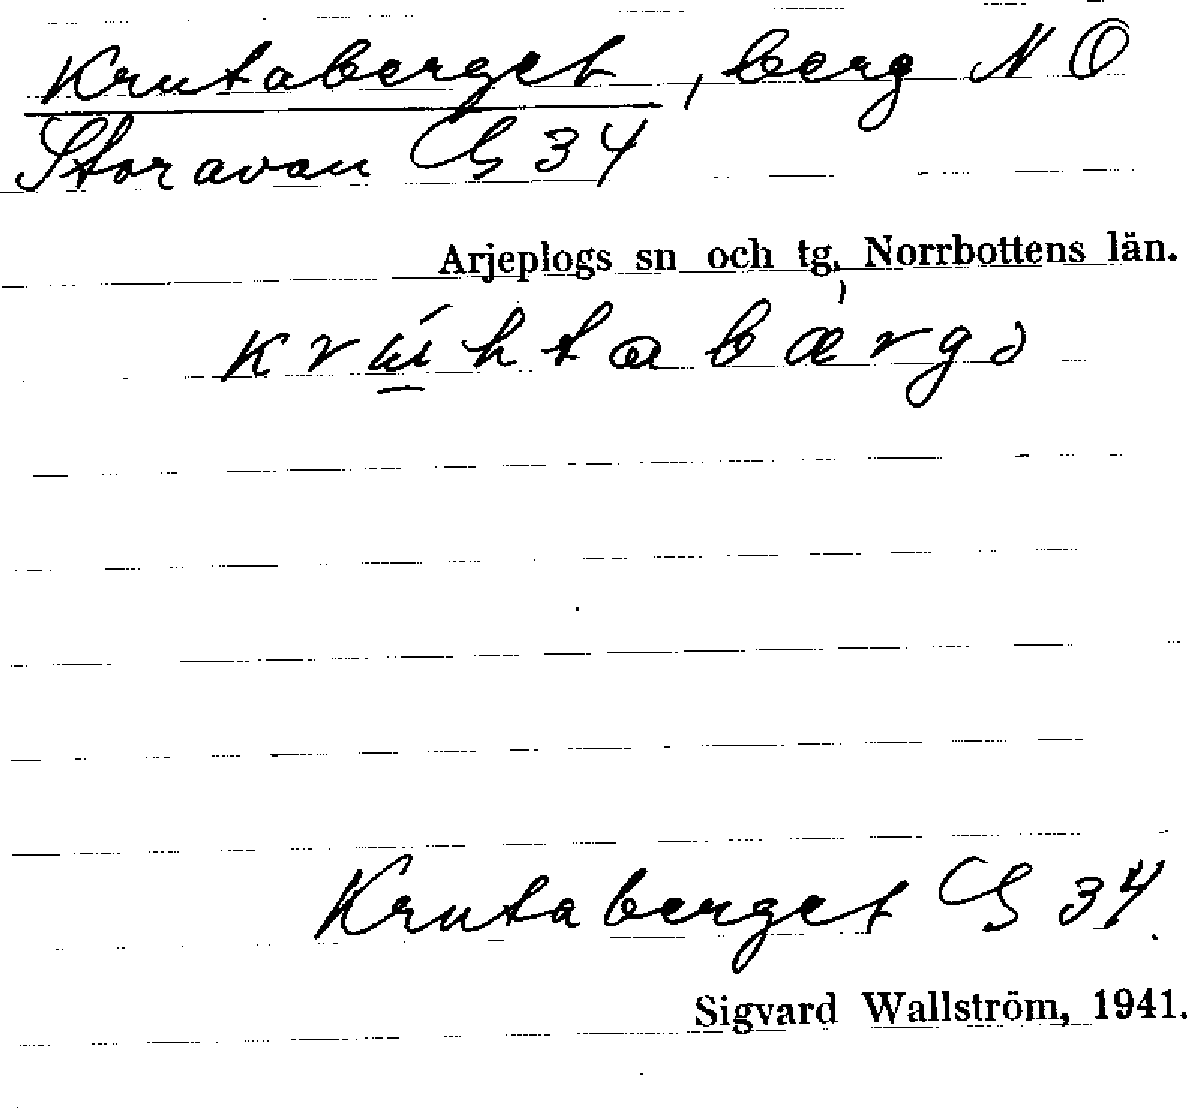 Krutaberget, berg NO
Storavan G 34
Arjeplogs sn och tg, Norrbottens län.
Krutaberget G 34.
Sigvard Wallström, 1941.